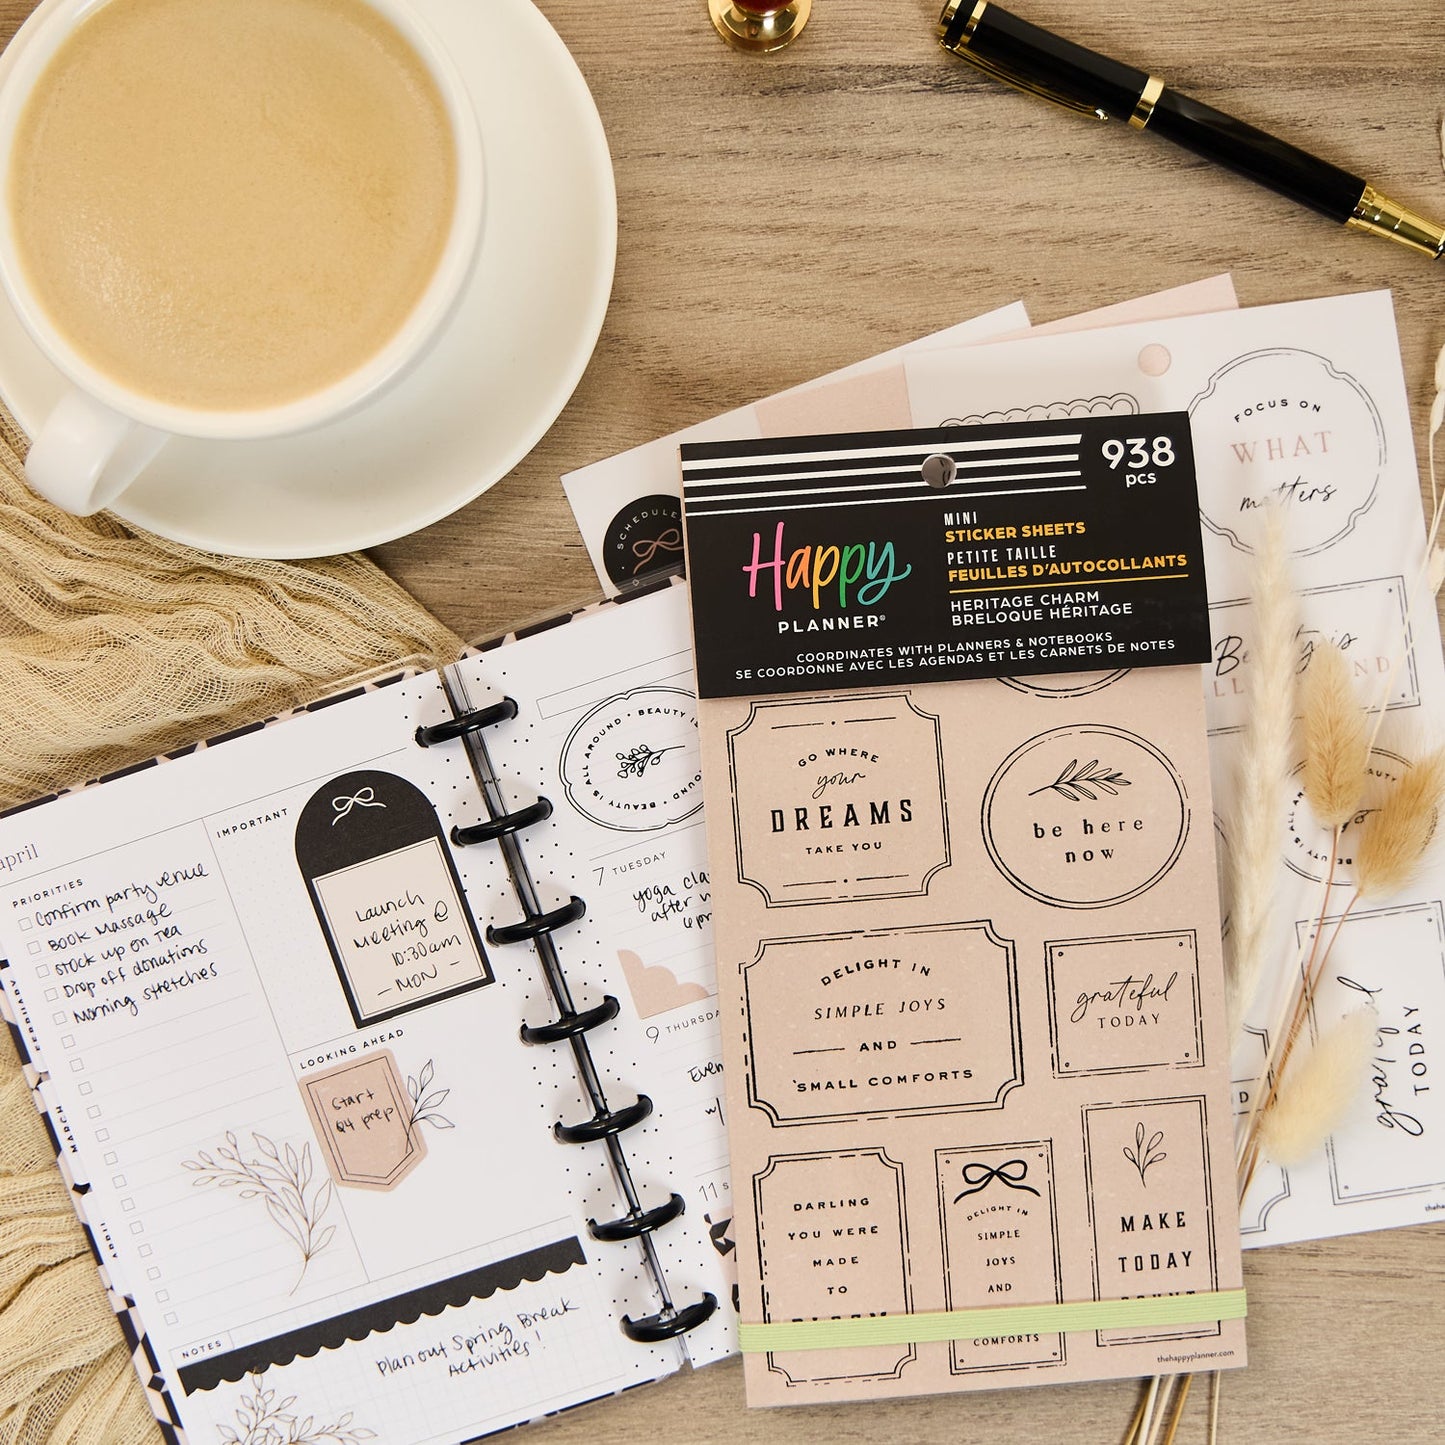 938
pcs
MINI
STICKER SHEETS
PETITE TAILLE
FEUILLES D'AUTOCOLLANTS
HERITAGE CHARM
BRELOQUE HÉRITAGE
Happy
PLANNER®
COORDINATES WITH PLANNERS & NOTEBOOKS
SE COORDONNE AVEC LES AGENDAS ET LES CARNETS DE NOTES
GO WHERE
your
DREAMS
TAKE YOU
be here
now
DELIGHT IN
SIMPLE JOYS
AND
SMALL COMFORTS
grateful
TODAY
DARLING
YOU WERE
MADE
TO
DELIGHT IN
SIMPLE
JOYS
AND
COMFORTS
MAKE
TODAY
thehappyplanner.com
FOCUS ON
WHAT
matters
grateful
TODAY
april
PRIORITIES
Confirm party venue
Book Massage
Stock up on Tea
Drop off donations
Morning stretches
IMPORTANT
Launch
Meeting @
10:30am
- MON -
LOOKING AHEAD
Start
Q4 prep
NOTES
Plan out Spring Break
Activities!
MARCH
APRIL
IS ALL AROUND • BEAUTY
7 TUESDAY
yoga
after
9 THURSDAY
w/
11